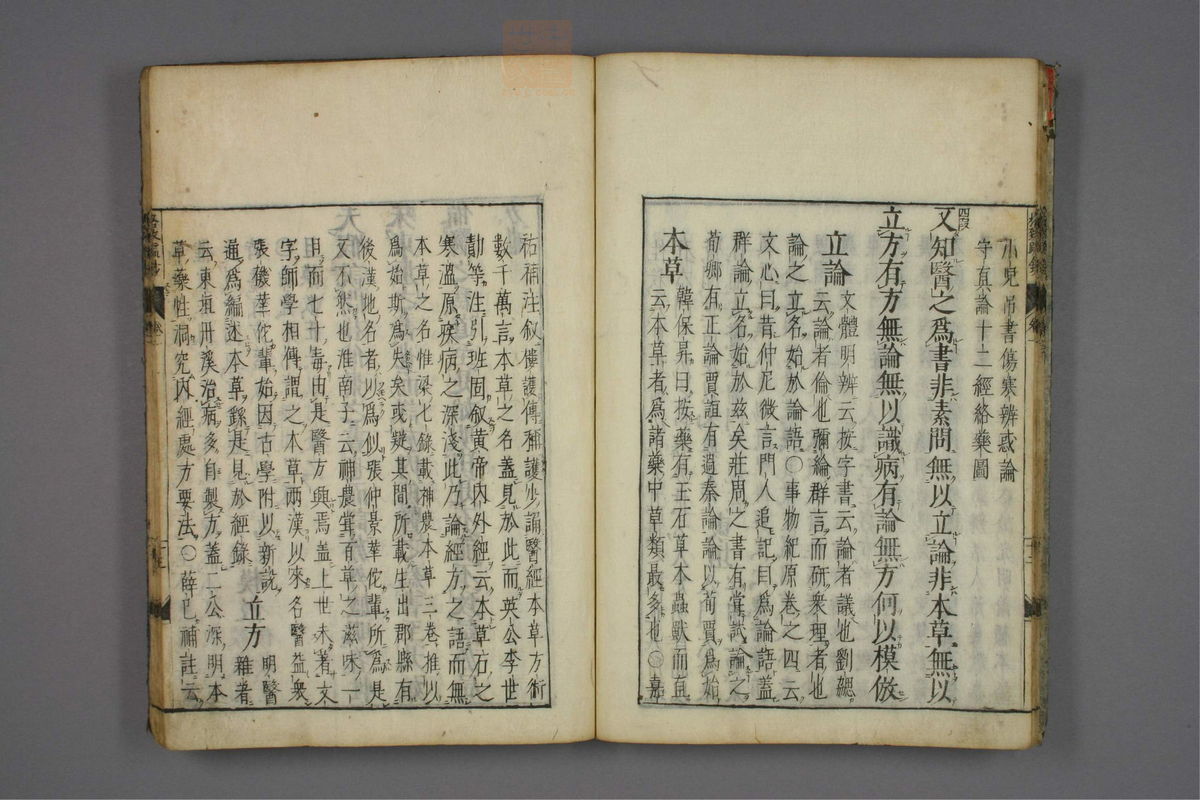 小兒吊書傷寒辨惑論
守真論十二經絡藥圖
四段
又知醫之爲書非素問無以立論非本草無以
立方有方無論無以識病有論無方何以模倣
立論 文體明辨云按字書云論者議也劉勰
云論者倫也彌綸群言而研衆理者也
論之立名始於論語〇事物紀原卷之四云
文心曰昔仲尼微言門人追記目爲論語蓋
群論立名始於茲矣莊周之書有嘗試論之
荀卿有正論賈誼有過秦論論以荀賈爲始
本草 韓保昇曰按藥有玉石草木蟲獸而直
云本草者爲諸藥中草類最多也〇嘉
祐補注叙僂護傳稱護少誦醫經本草方術
數千萬言本草之名蓋見於此而英公李世
勣等注引班固叙黄帝内外經云本草石之
寒溫原疾病之深淺此乃論經方之語而無
本草之名惟梁七錄載神農本草三卷推以
爲始斯爲失矣或疑其間所載生出郡縣有
後漢地名者以爲似張仲景華佗輩所爲是
又不然也淮南子云神農嘗百草之滋味一
日而七十毒由是醫方興焉蓋上世未著文
字師學相傳謂之本草兩漢以來名醫益衆
張機華佗輩始因古學附以新說
通爲編述本草繇是見於經錄 立方 明醫雜著
云東垣丹溪治病多自製方蓋二公深明本
草藥性洞究内經處方要法〇薛已補註云